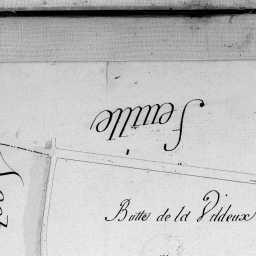 Feuille
Butte de la Vildeux